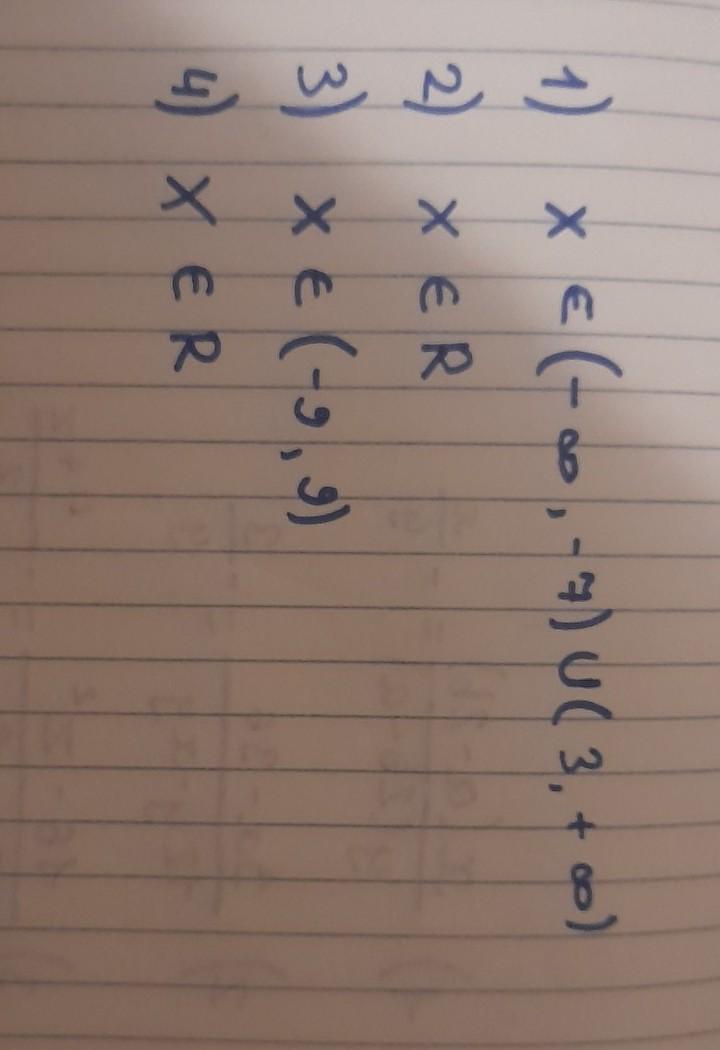 1) X ∈ (-∞, -7) U (3, +∞)
2) X ∈ R
3) X ∈ (-9, 9)
4) X ∈ R